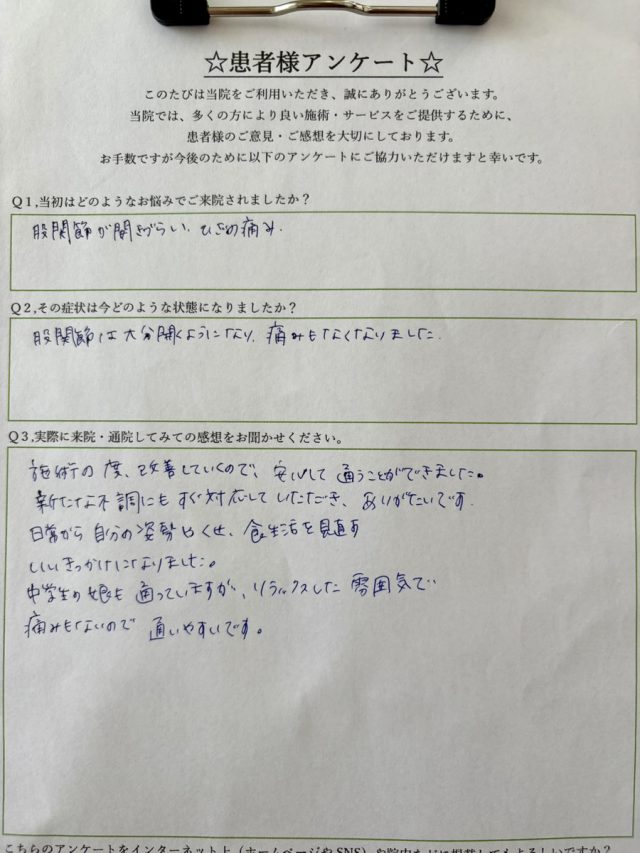 ☆患者様アンケート☆
このたびは当院をご利用いただき、誠にありがとうございます。
当院では、多くの方により良い施術・サービスをご提供するために、
患者様のご意見・ご感想を大切にしております。
お手数ですが今後のために以下のアンケートにご協力いただけますと幸いです。
Q1,当初はどのようなお悩みでご来院されましたか？
股関節が開きづらい、ひざの痛み.
Q2,その症状は今どのような状態になりましたか？
股関節は大分開くようになり、痛みもなくなりました.
Q3,実際に来院・通院してみての感想をお聞かせください。
施術の度、改善していくので、安心して通うことができました。
新たな不調にもすぐ対応していただき、ありがたいです.
日常から自分の姿勢やくせ、食生活を見直す
いいきっかけになりました。
中学生の娘も通っていますが、リラックスした雰囲気で
痛みもないので通いやすいです。
こちらのアンケートをインターネット上（ホームページやSNS）や院内などに掲載してもよろしいですか？